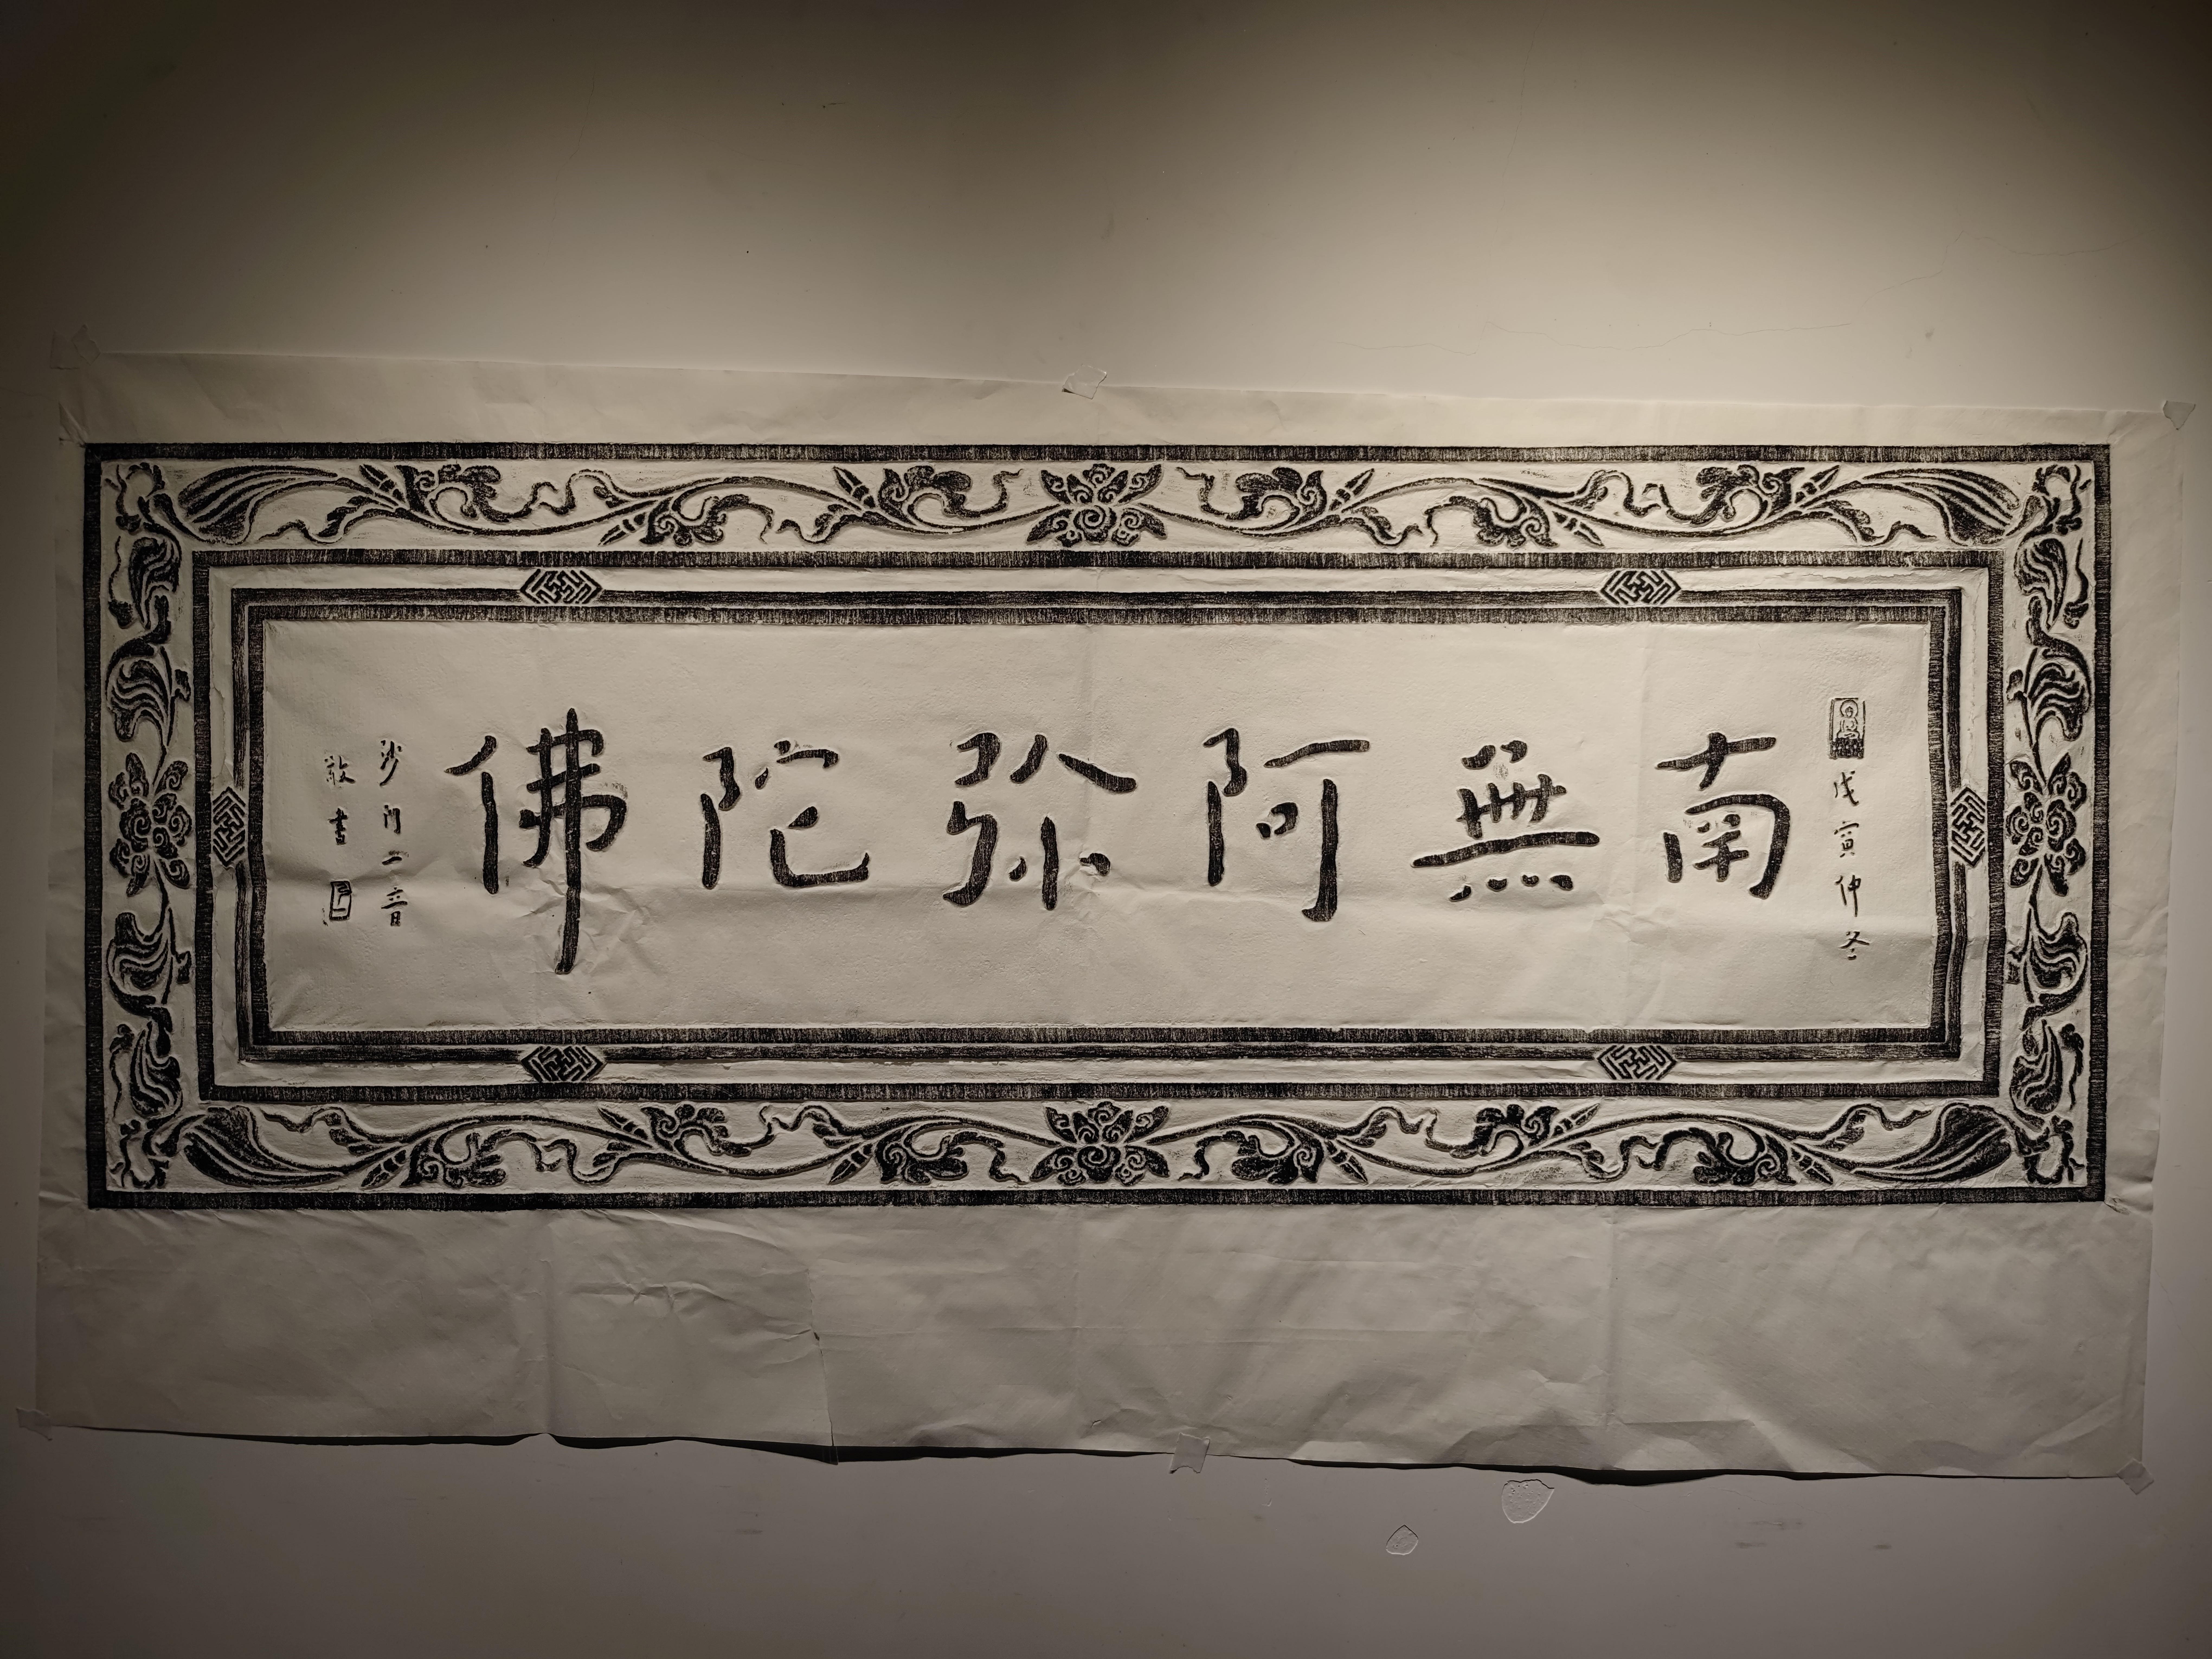 戊寅仲冬
南無阿弥陀佛
沙門一音
敬書